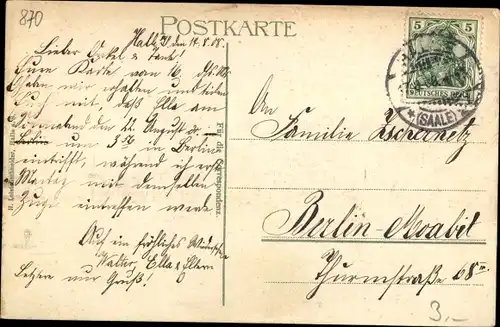 870
POSTKARTE
Halle, den 19.8.08.
Lieber Onkel & Tante!
Eure Karte vom 16. ds. Mts.
haben wir erhalten und teilen
Euch mit, daß Ella am
Sonnabend den 22. August
um 5 in Berlin
eintrifft, während ich erst
Montag mit demselben
Zuge eintreffen werde
Auf ein fröhliches Wiedersehn
Walter, Ella & Eltern
Letztere nur Gruß!
Für die Korrespondenz.
5 5
DEUTSCHES REICH
* (SAALE) *
An
Familie Zschernetz
Berlin-Moabit
Thurmstraße 68
3.-